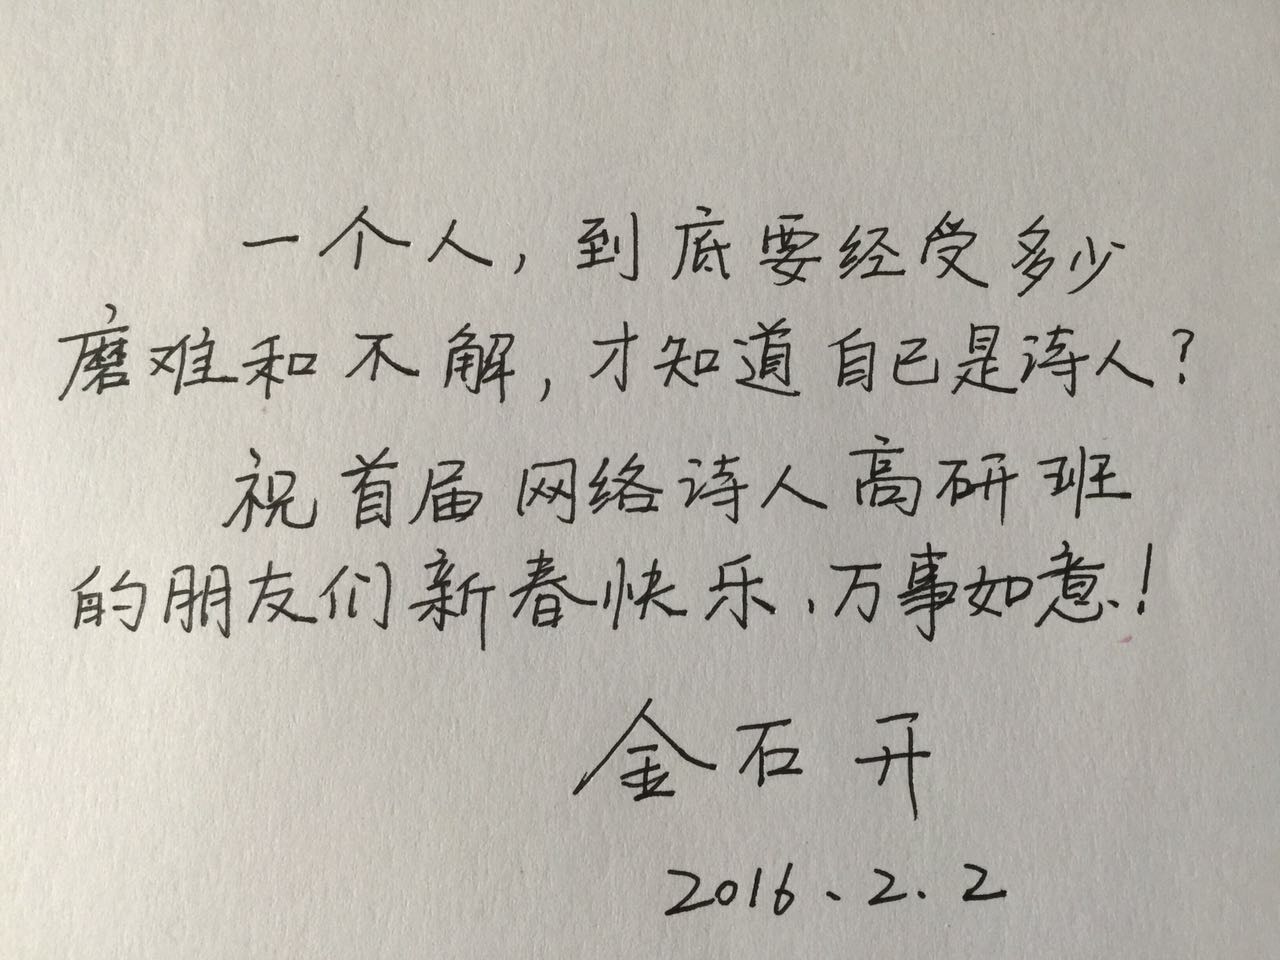 一个人，到底要经受多少
磨难和不解，才知道自己是诗人？
祝首届网络诗人高研班
的朋友们新春快乐、万事如意！
金石开
2016、2、2